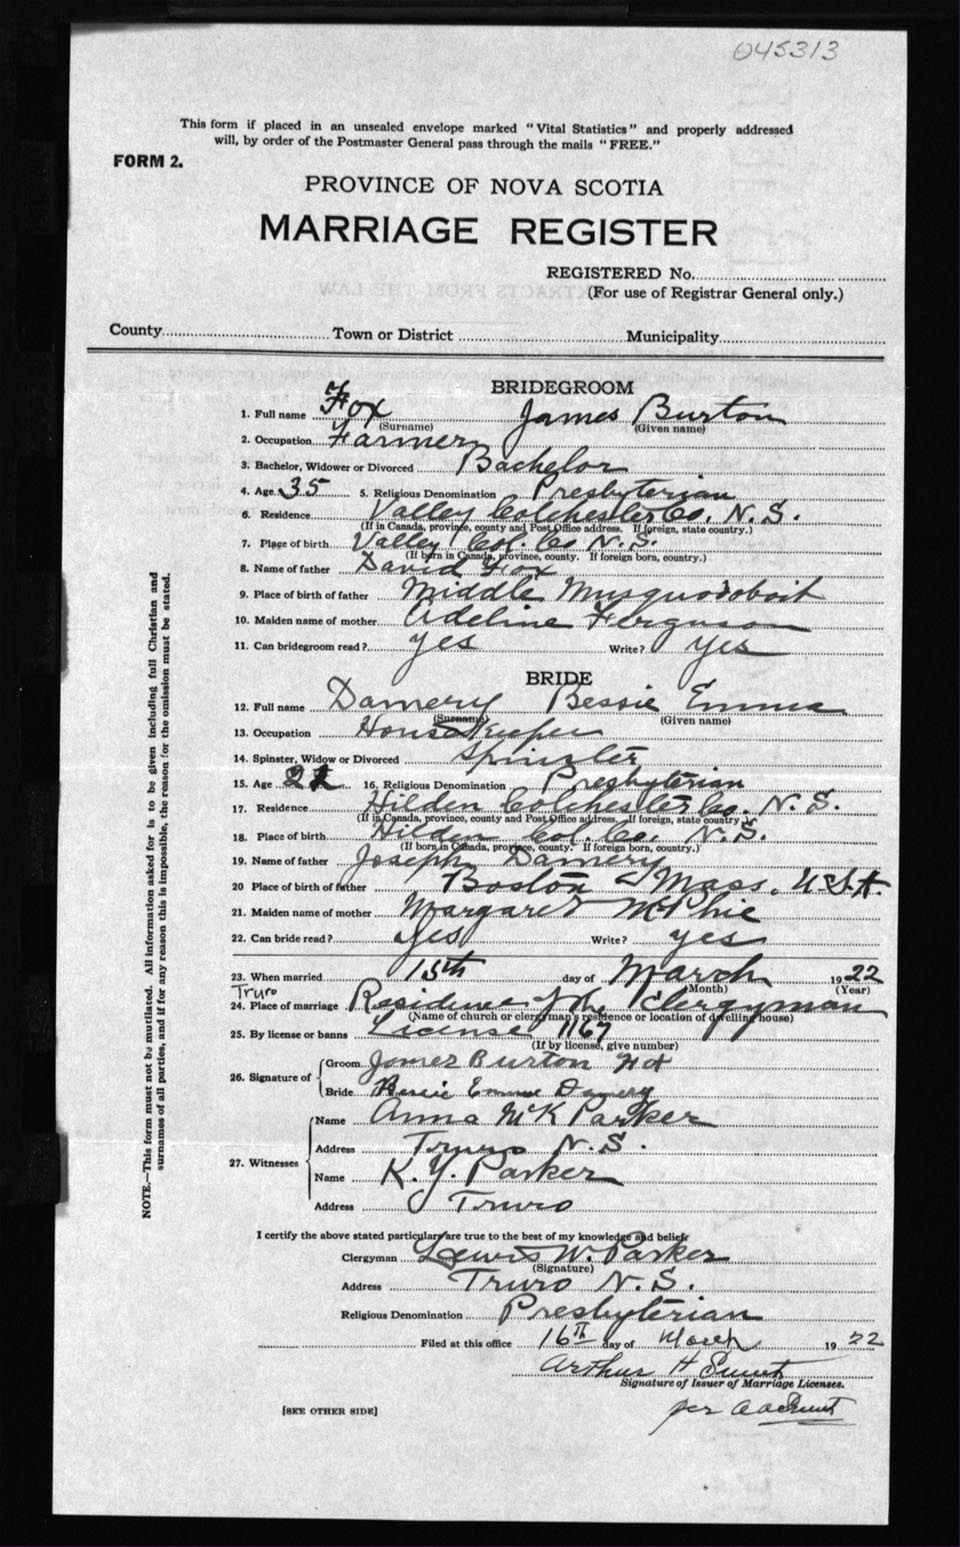 045313
This form if placed in an unsealed envelope marked "Vital Statistics" and properly addressed
will, by order of the Postmaster General pass through the mails "FREE."
FORM 2.
PROVINCE OF NOVA SCOTIA
MARRIAGE REGISTER
REGISTERED No.
(For use of Registrar General only.)
County Town or District Municipality
BRIDEGROOM
1. Full name Fox James Burton
(Surname) (Given name)
2. Occupation Farmer
3. Bachelor, Widower or Divorced Bachelor
4. Age 35 5. Religious Denomination Presbyterian
6. Residence Valley Colchester Co. N.S.
(If in Canada, province, county and Post Office address. If foreign, state country.)
7. Place of birth Valley Col. Co N.S.
(If born in Canada, province, county. If foreign born, country.)
8. Name of father David Fox
9. Place of birth of father Middle Musquodoboit
10. Maiden name of mother Adeline Ferguson
11. Can bridegroom read? yes Write? yes
BRIDE
12. Full name Damery Bessie Emma
(Surname) (Given name)
13. Occupation House Keeper
14. Spinster, Widow or Divorced Spinster
15. Age 21 16. Religious Denomination Presbyterian
17. Residence Hilden Colchester Co. N.S.
(If in Canada, province, county and Post Office address. If foreign, state country.)
18. Place of birth Hilden Col. Co. N.S.
(If born in Canada, province, county. If foreign born, country.)
19. Name of father Joseph Damery
20 Place of birth of father Boston - Mass. U.S.A.
21. Maiden name of mother Margaret McPhie
22. Can bride read? yes Write? yes
23. When married 15th day of March 1922
(Month) (Year)
Truro
24. Place of marriage Residence of the Clergyman
(Name of church or clergyman's residence or location of dwelling house)
25. By license or banns License 1167
(If by license, give number)
26. Signature of Groom James Burton Fox
Bride Bessie Emma Damery
27. Witnesses
Name Anna McK Parker
Address Truro N.S.
Name K. Y. Parker
Address Truro
I certify the above stated particulars are true to the best of my knowledge and belief
Clergyman Lewis W. Parker
(Signature)
Address Truro N.S.
Religious Denomination Presbyterian
Filed at this office 16th day of March 1922
Arthur H
Signature of Issuer of Marriage Licenses.
per
[SEE OTHER SIDE]
NOTE.—This form must not be mutilated. All information asked for is to be given including full Christian and
surnames of all parties, and if for any reason this is impossible, the reason for the omission must be stated.